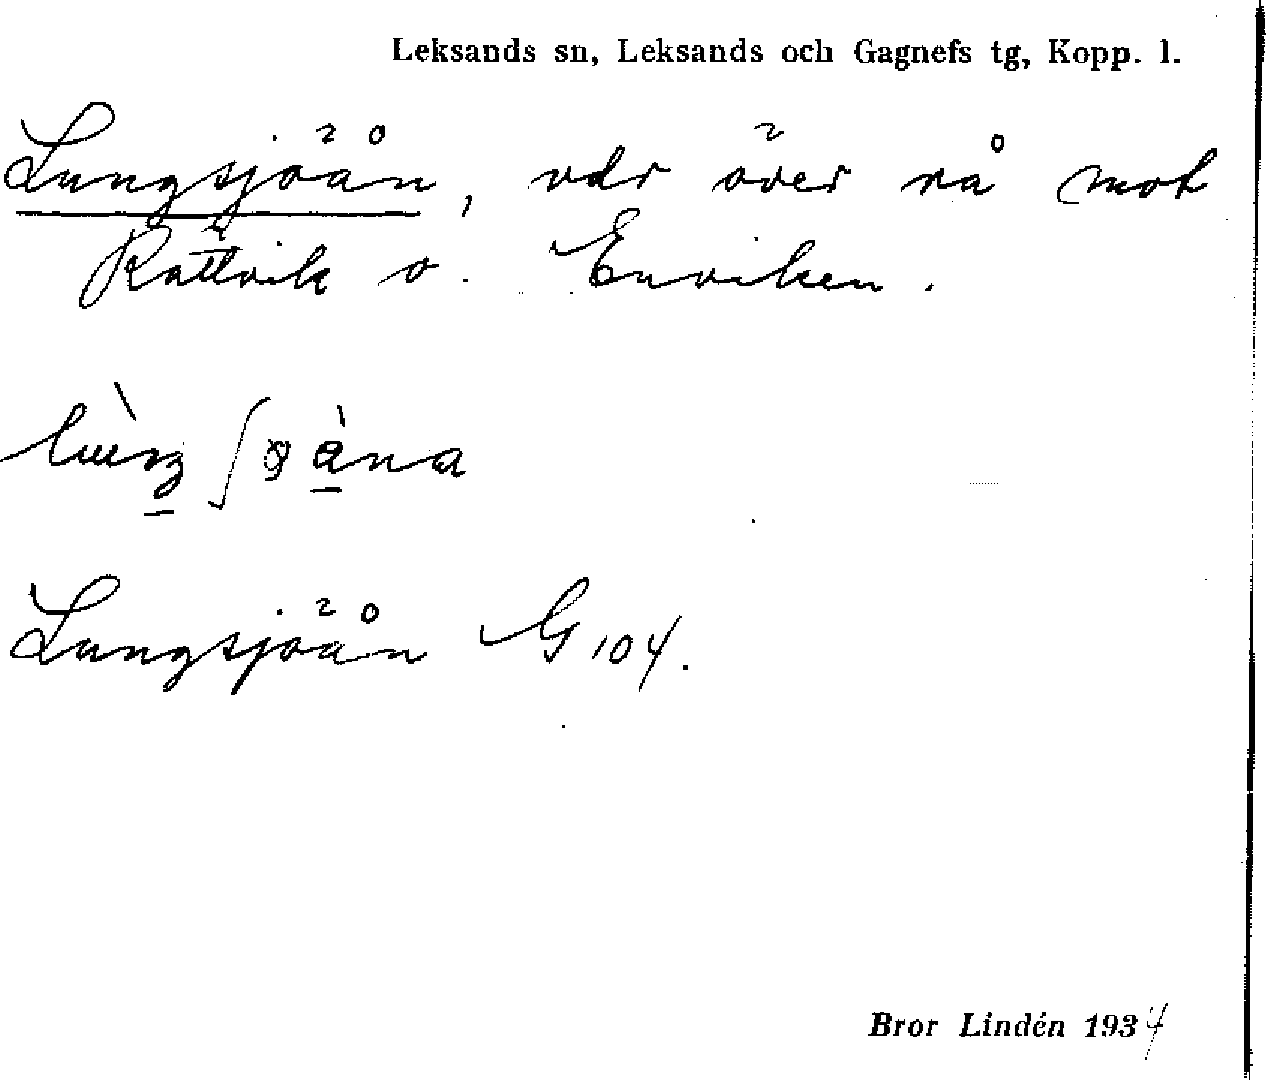 Leksands sn, Leksands och Gagnefs tg, Kopp. l.
Lungsjöån, vdr över rå mot
Rättvik o. Enviken.
Lungsjöån G 104.
Bror Lindén 1934